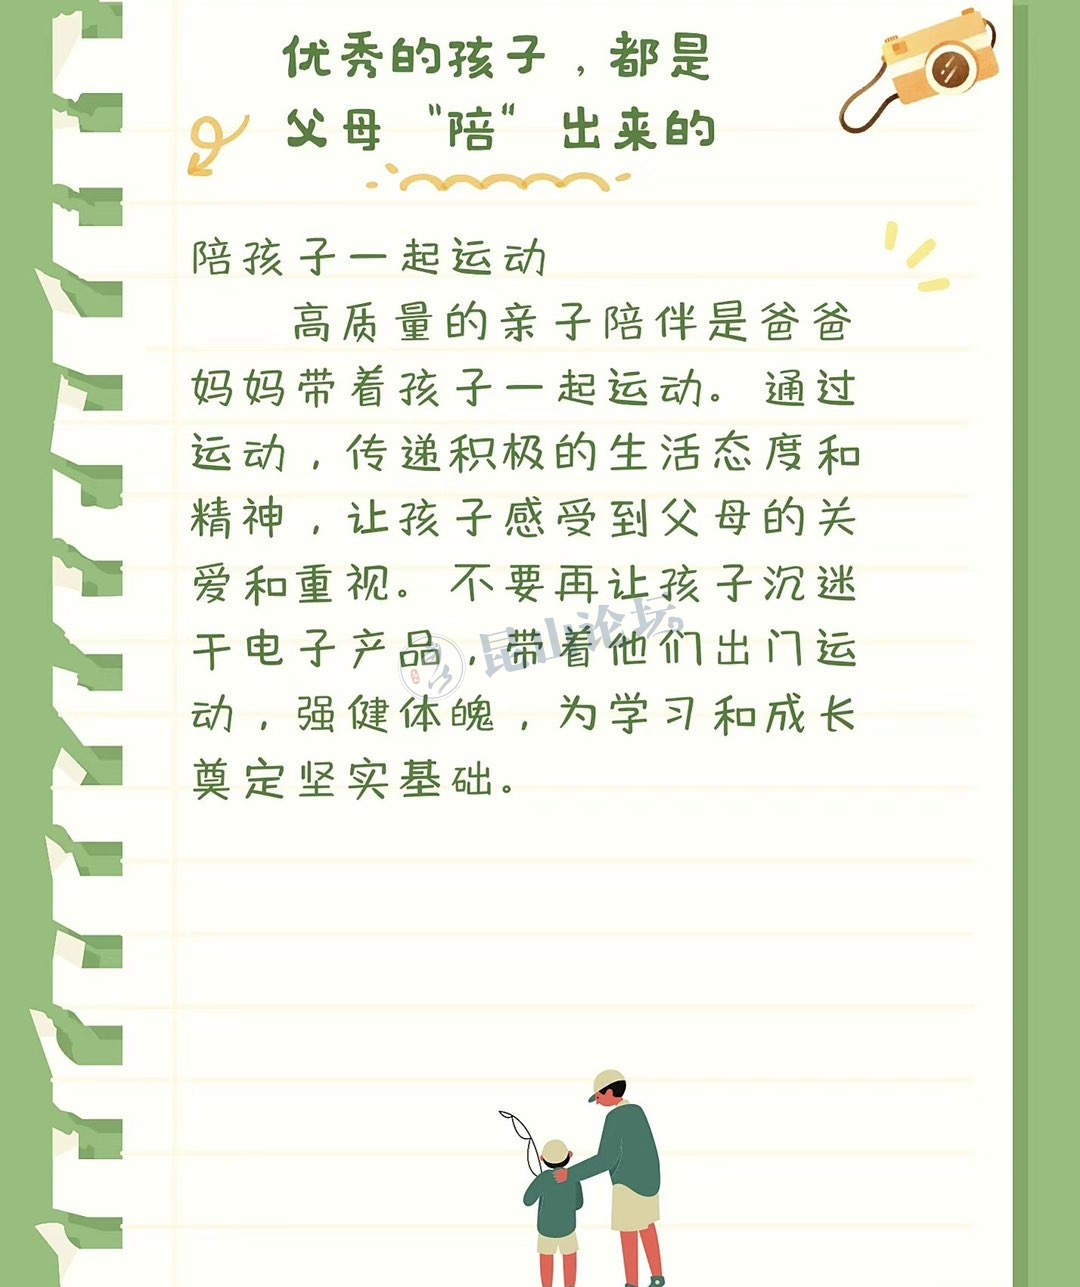 优秀的孩子，都是
父母“陪“出来的
陪孩子一起运动
高质量的亲子陪伴是爸爸
妈妈带着孩子一起运动。通过
运动，传递积极的生活态度和
精神，让孩子感受到父母的关
爱和重视。不要再让孩子沉迷
干电子产品，带着他们出门运
动，强健体魄，为学习和成长
奠定坚实基础。
昆山论坛